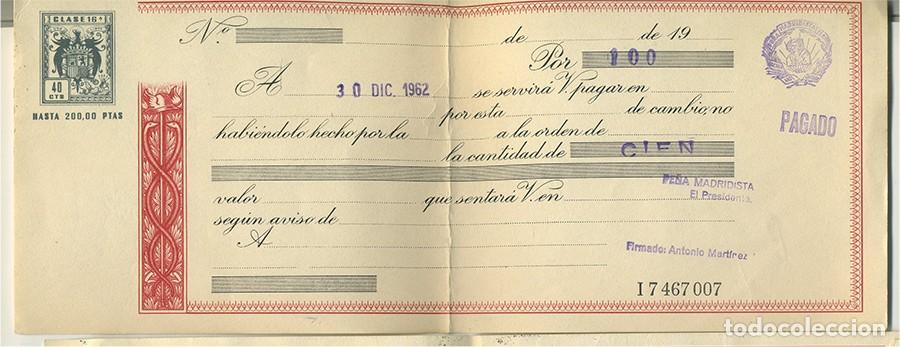 CLASE 16ª
40
CTS
HASTA 200,00 PTAS
N.º de de 19
Por 100
A 30 DIC. 1962 se servirá V. pagar en
por esta de cambio, no
habiéndolo hecho por la a la orden de
la cantidad de CIEN
PAGADO
valor que sentará V. en
según aviso de
A
PEÑA MADRIDISTA
El Presidente,
Firmado: Antonio Martínez
I 7467007
todocoleccion